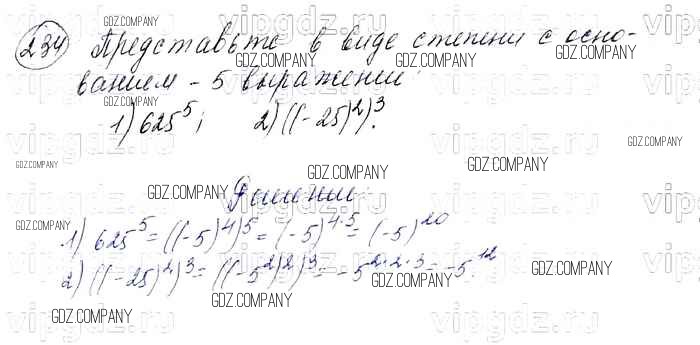 234 Представьте в виде степени с осно-
ванием - 5 выражение:
1) 625^5; 2) ((-25)^2)^3.
Решение:
1) 625^5 = ((-5)^4)^5 = (-5)^{4·5} = (-5)^{20}
2) ((-25)^2)^3 = ((-5^2)^2)^3 = -5^{2·2·3} = -5^{12}.
GDZ.COMPANY
vipgdz.ru